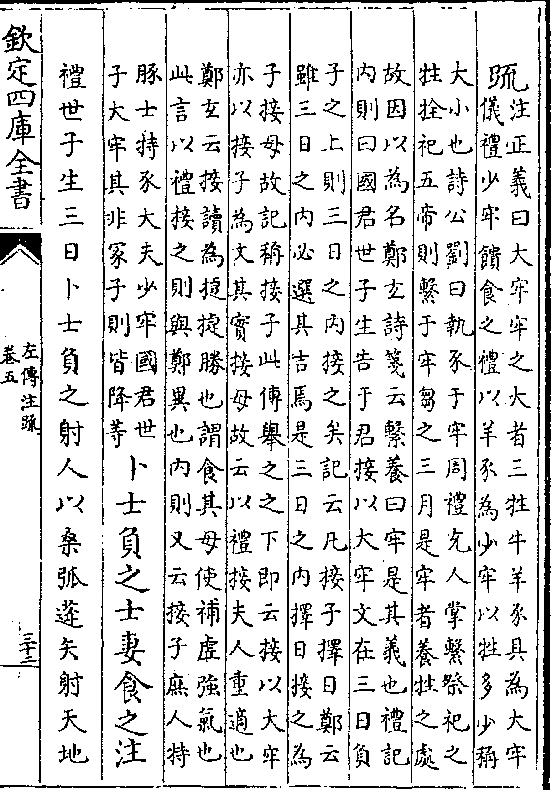 疏注正義曰大牢牢之大者三牲牛羊豕具為大牢
儀禮少牢饋食之禮以羊豕為少牢以牲多少稱
大小也詩公劉曰執豕于牢周禮充人掌繫祭祀之
牲牷祀五帝則繫于牢芻之三月是牢者養牲之處
故因以為名鄭玄詩箋云繫養曰牢是其義也禮記
內則曰國君世子生告于君接以大牢文在三日負
子之上則三日之內接之矣記云凡接子擇日鄭云
雖三日之內必選其吉焉是三日之內擇日接之為
子接母故記稱接子此傳舉之之下即云接以大牢
亦以接子為文其實接母故云以禮接夫人重適也
鄭玄云接讀為捷捷勝也謂食其母使補虛強氣也
此言以禮接之則與鄭異也內則又云接子庶人特
豚士特豕大夫少牢國君世
子大牢其非冢子則皆降等
卜士負之士妻食之注
禮世子生三日卜士負之射人以桑弧蓬矢射天地
欽定四庫全書
左傳注疏
卷五
三十二